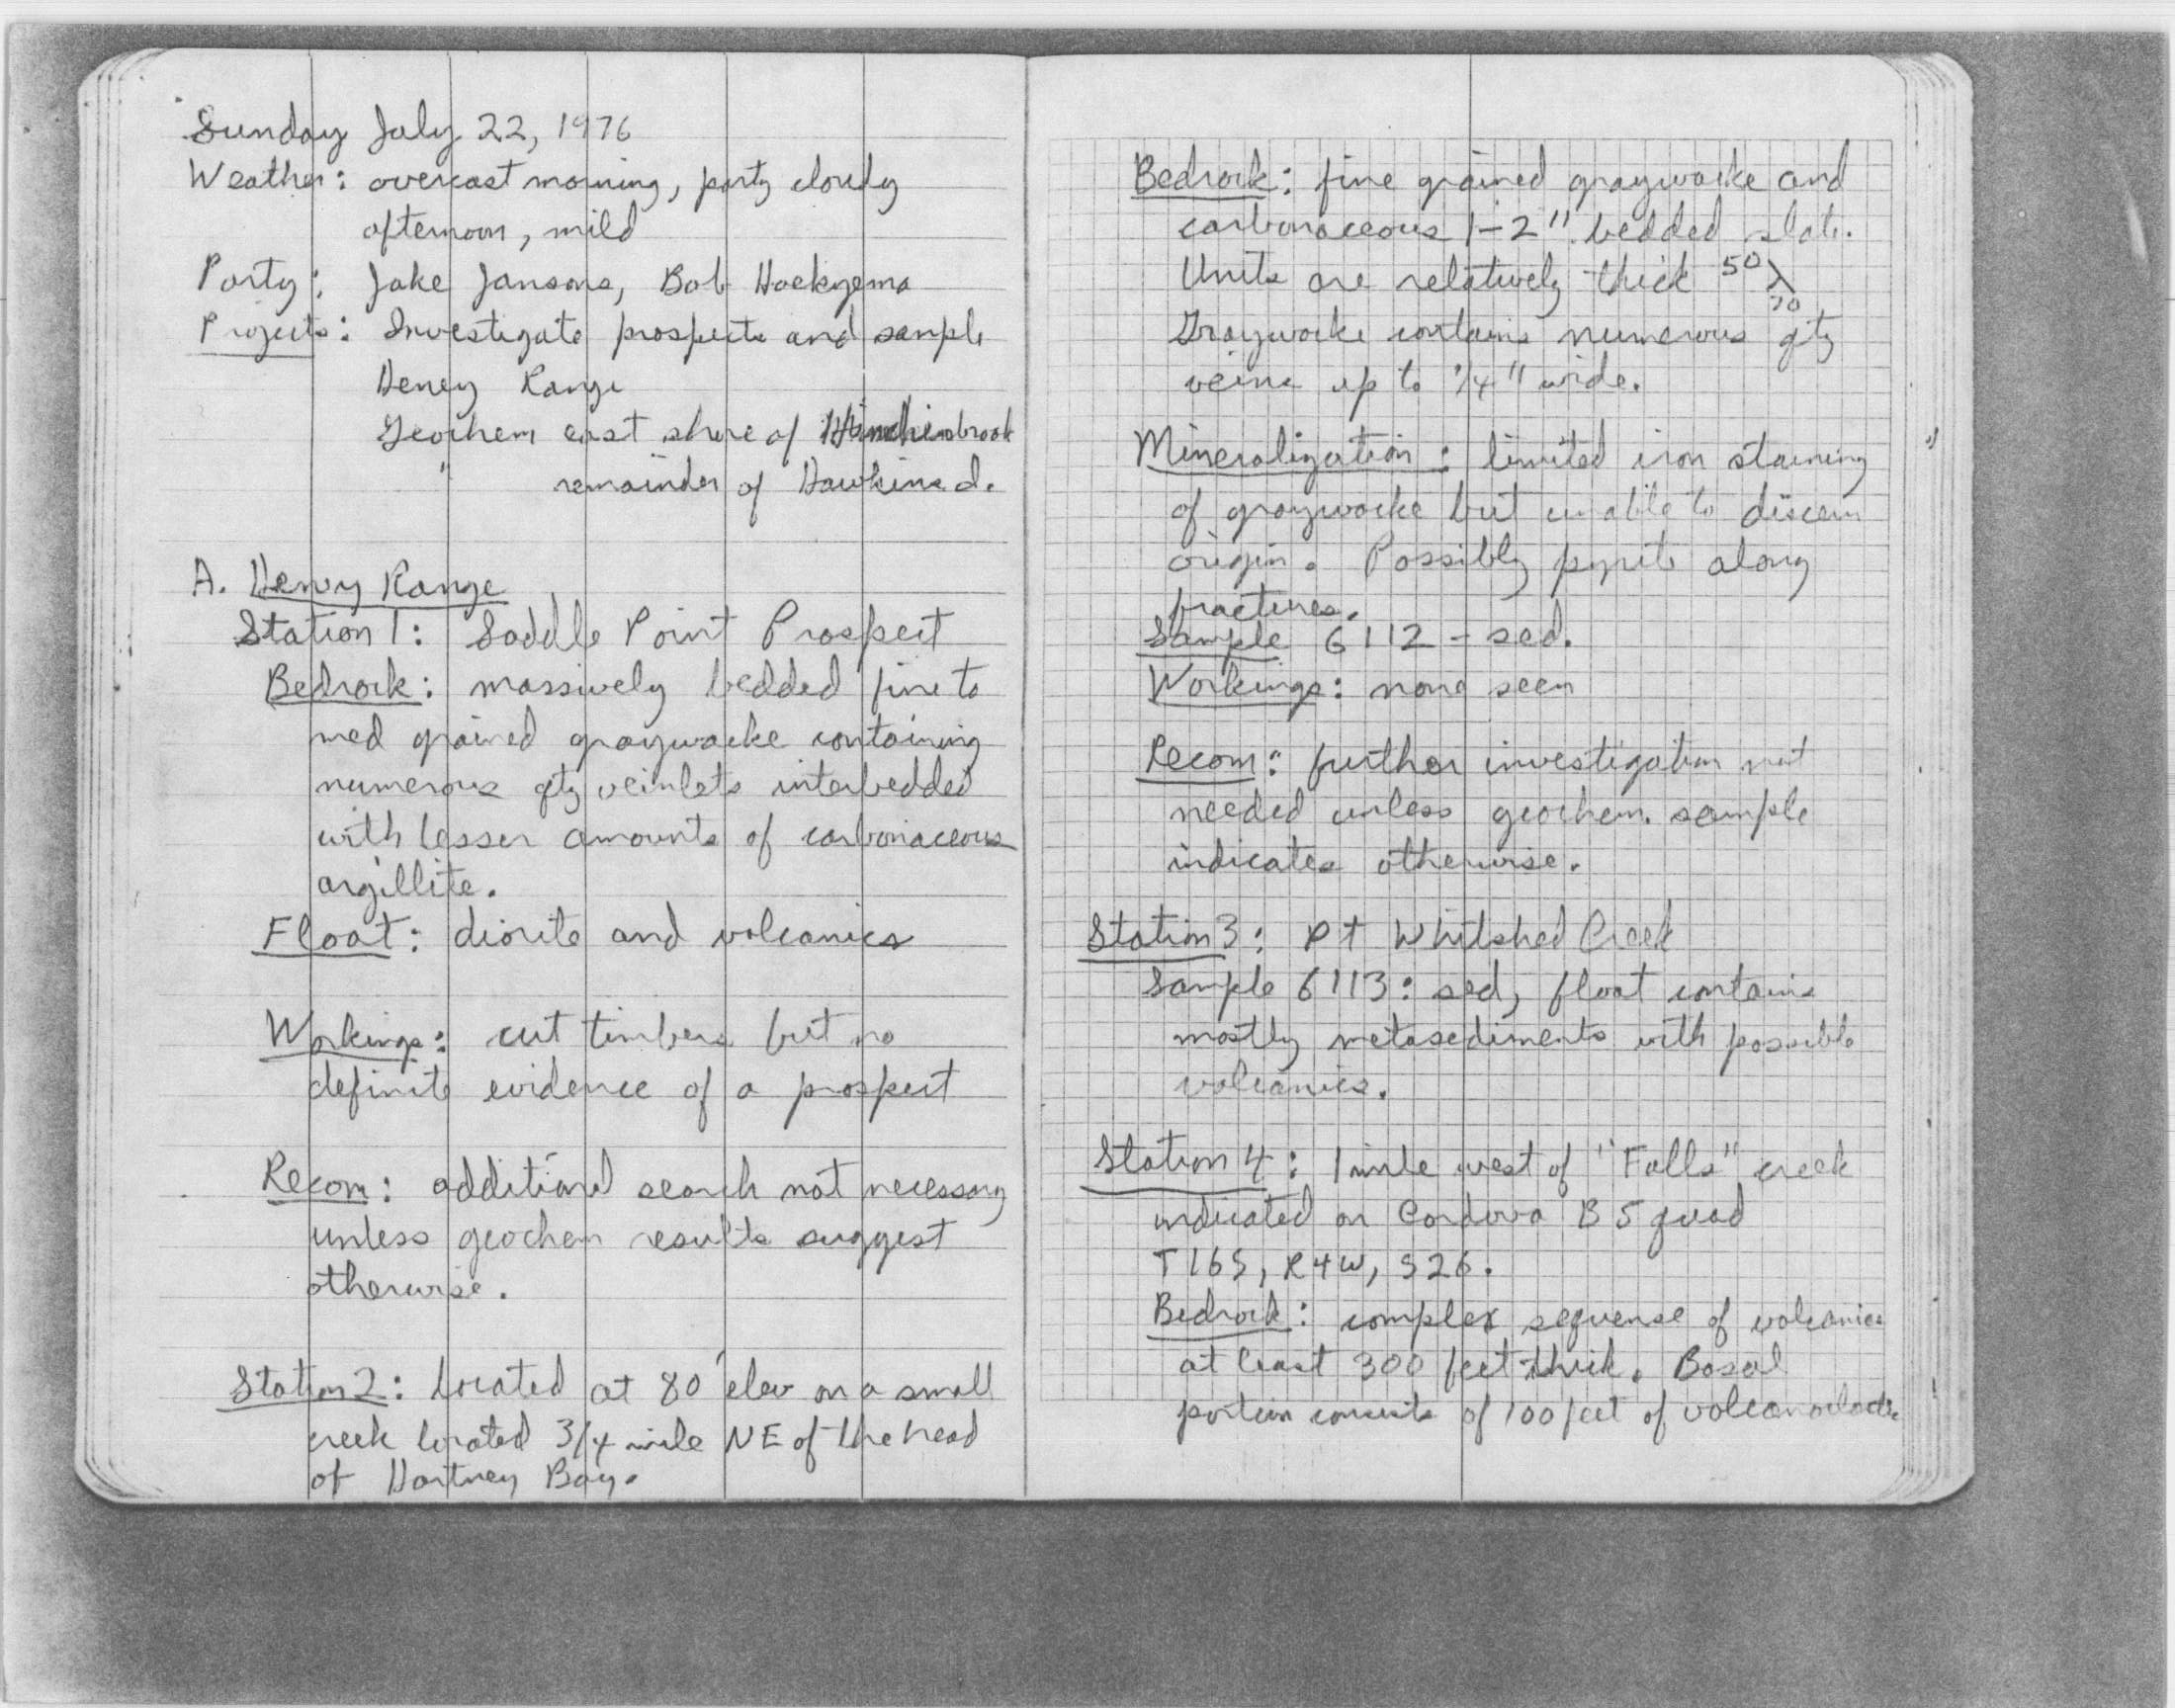 Sunday July 22, 1976
Weather: overcast morning, party cloudy
afternoon, mild
Party: Jake Jansons, Bob Hoekzema
Projects: Investigate prospects and sample
Heney Range
Geochem east shore of Hinchinbrook
" remainder of Hawkins I.
A. Heney Range
Station 1: Saddle Point Prospect
Bedrock: massively bedded fine to
med grained graywacke containing
numerous qtz veinlets interbedded
with lesser amounts of carbonaceous
argillite.
Float: diorite and volcanics
Workings: cut timbers but no
definite evidence of a prospect
Recom: additional search not necessary
unless geochem results suggest
otherwise.
Station 2: located at 80' elev on a small
creek located 3/4 mile NE of the head
of Hartney Bay.
Bedrock: fine grained graywacke and
carbonaceous 1-2" bedded slate.
Units are relatively thick 50 70
Graywacke contains numerous qtz
veins up to 1/4" wide.
Mineralization: limited iron staining
of graywacke but unable to discern
origin. Possibly pyrite along
fractures.
Sample 6112 - sed.
Workings: none seen
Recom: further investigation not
needed unless geochem. sample
indicates otherwise.
Station 3: Pt Whitshed Creek
Sample 6113: sed, float contains
mostly metasediments with possible
volcanics.
Station 4: 1 mile west of "Falls" creek
indicated on Cordova B5 quad
T16S, R4W, S26.
Bedrock: complex sequense of volcanics
at least 300 feet thick. Basal
portion consists of 100 feet of volcanoclastic